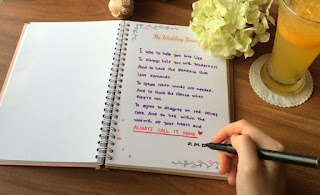 My Wedding Vows
I vow to help you love life
To always hold you with tenderness
And to have the patience that
love demands.
To speak when words are needed
And to share the silence when
they're not.
To agree to disagree on red velvet
cake. And to live within the
warmth of your heart and
ALWAYS CALL IT HOME